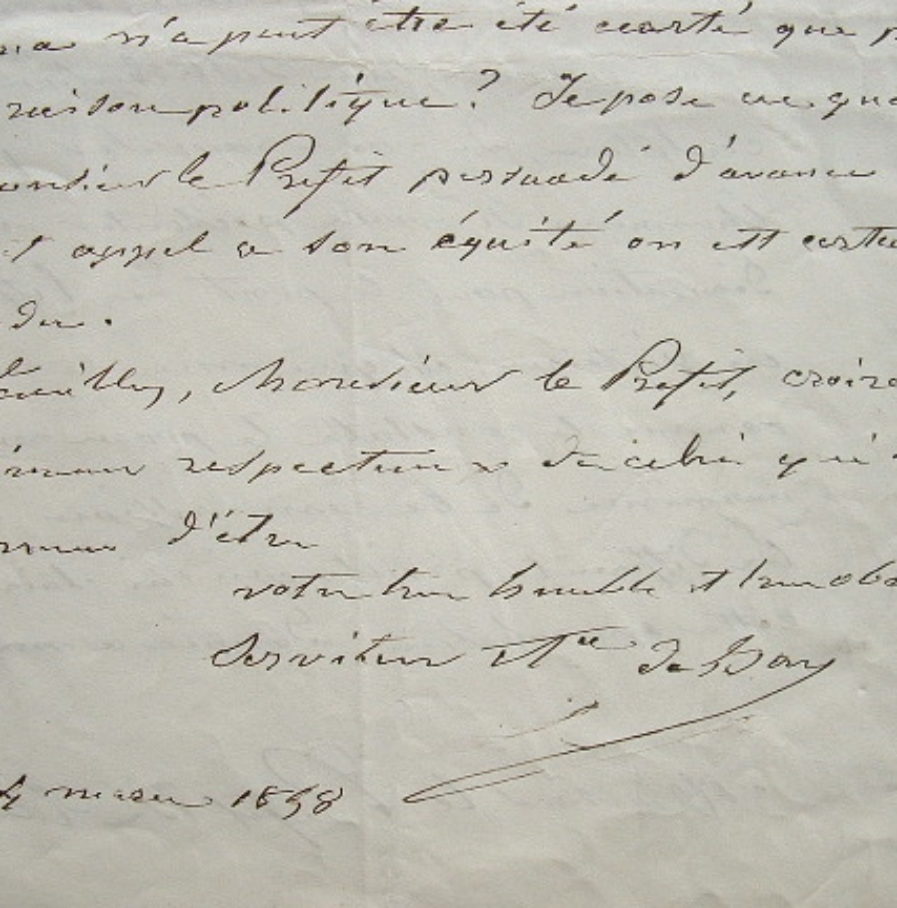 n'a peut être été écarté que p
raison politique? Je pose ce que
onsieur le Prefet persuadé d'avance
appel a son équité on est certa
der.
euillez, Monsieur le Prefet, croire
respectueux de celui qui
d'être
votre tres humble et tres obe
Serviteur de
4 mars 1858